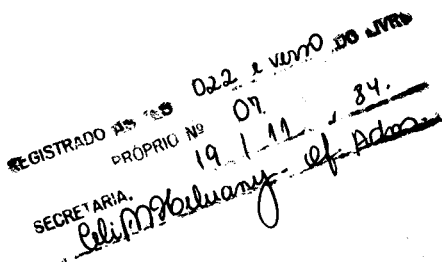 REGISTRADO ÀS FLS 022 e verso DO LIVRO
PRÓPRIO Nº 07
SECRETARIA, 19 / 11 / 84.
Of. Adm.